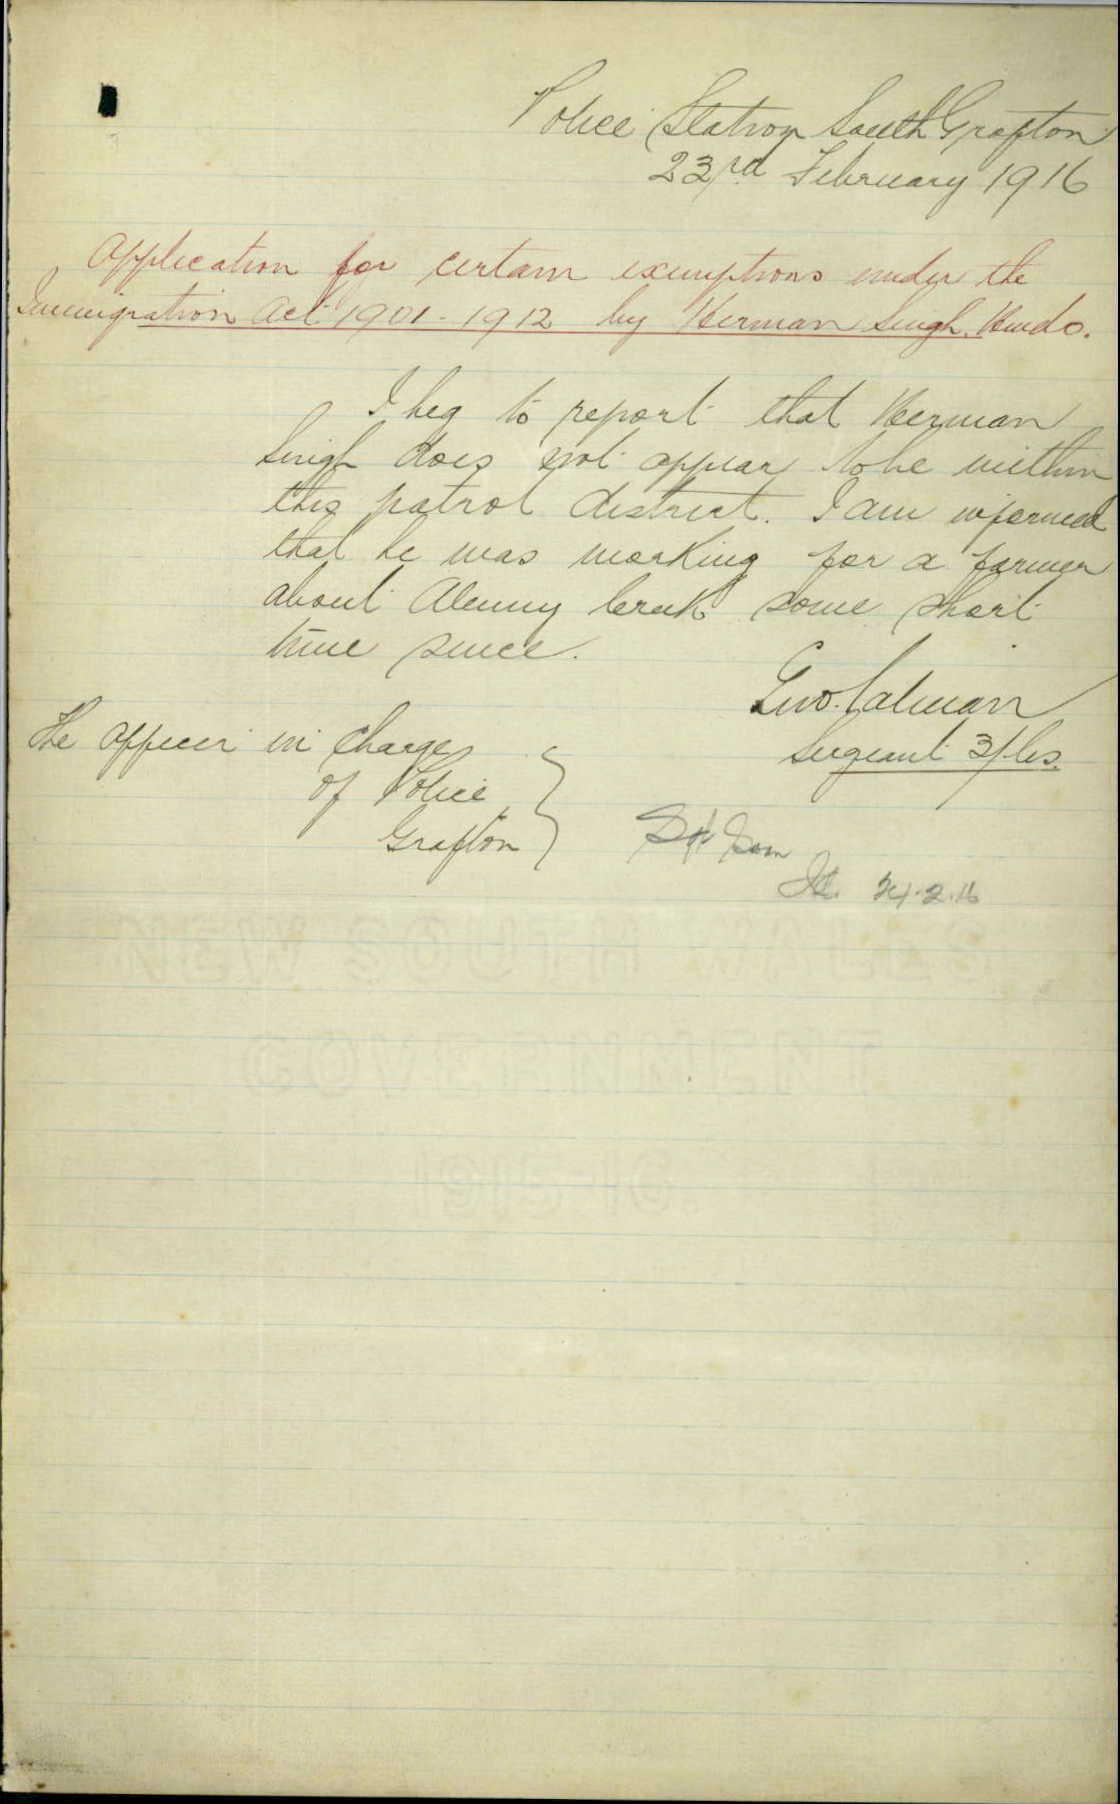 Police Station South Grafton
23rd February 1916
Application for certain exemptions under the
Immigration Act 1901-1912 by Herman Singh, Hindo.
I beg to report that Herman
Singh does not appear to be within
this patrol district. I am informed
that he was working for a farmer
about Alumny Creek some short
time since.
Geo. Calman
Sergeant 3/Cls.
The Officer in Charge
of Police
Grafton
24.2.16
NEW SOUTH WALES
GOVERNMENT
1915-16.